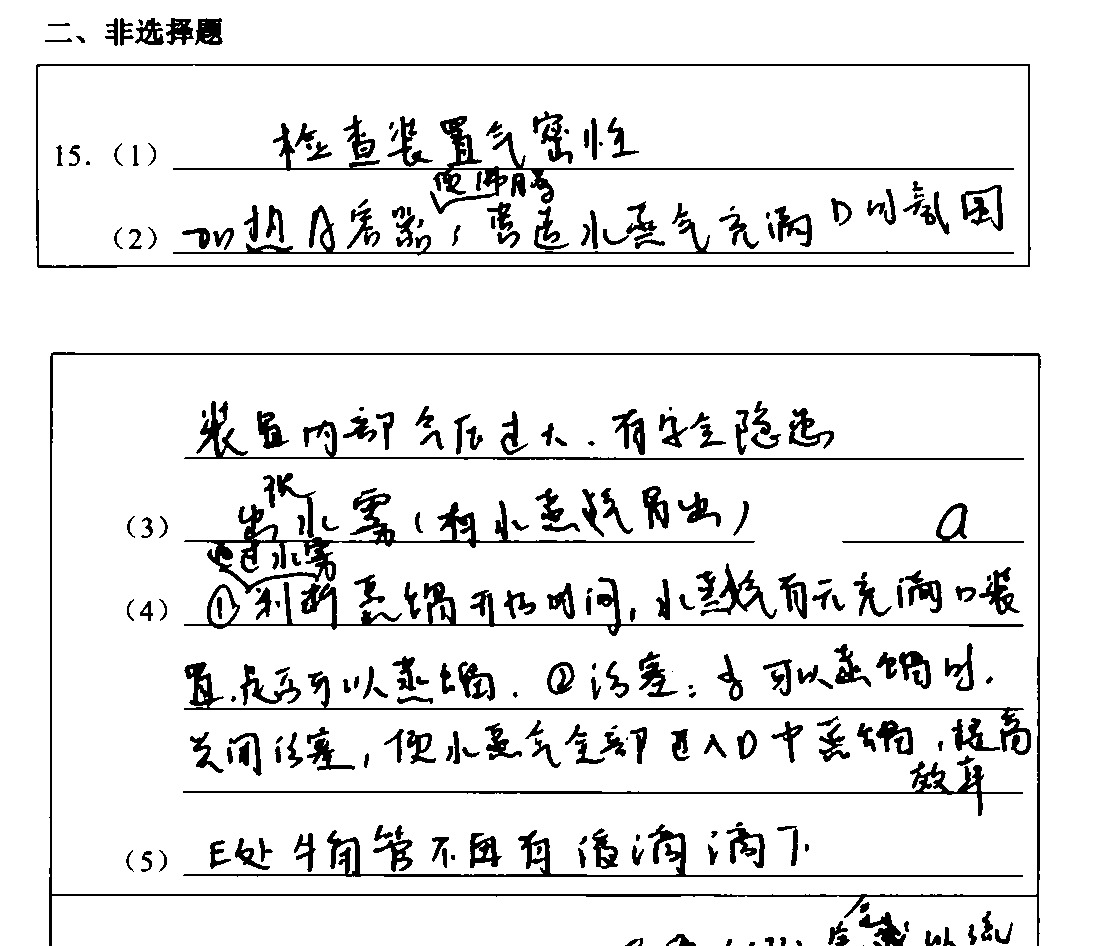 二、非选择题
15.（1） 检查装置气密性
使沸腾
（2） 加热A容器，营造水蒸气充满D的氛围
装置内部气压过大．有安全隐患
（3） 出水雾（有水蒸气冒出） a
通过水雾
（4） ①判断蒸馏开始时间，水蒸气有无充满D装
置．是否可以蒸馏．②活塞：当可以蒸馏时．
关闭活塞，使水蒸气全部进入D中蒸馏，提高
效率
（5） E处牛角管不再有液滴滴下．